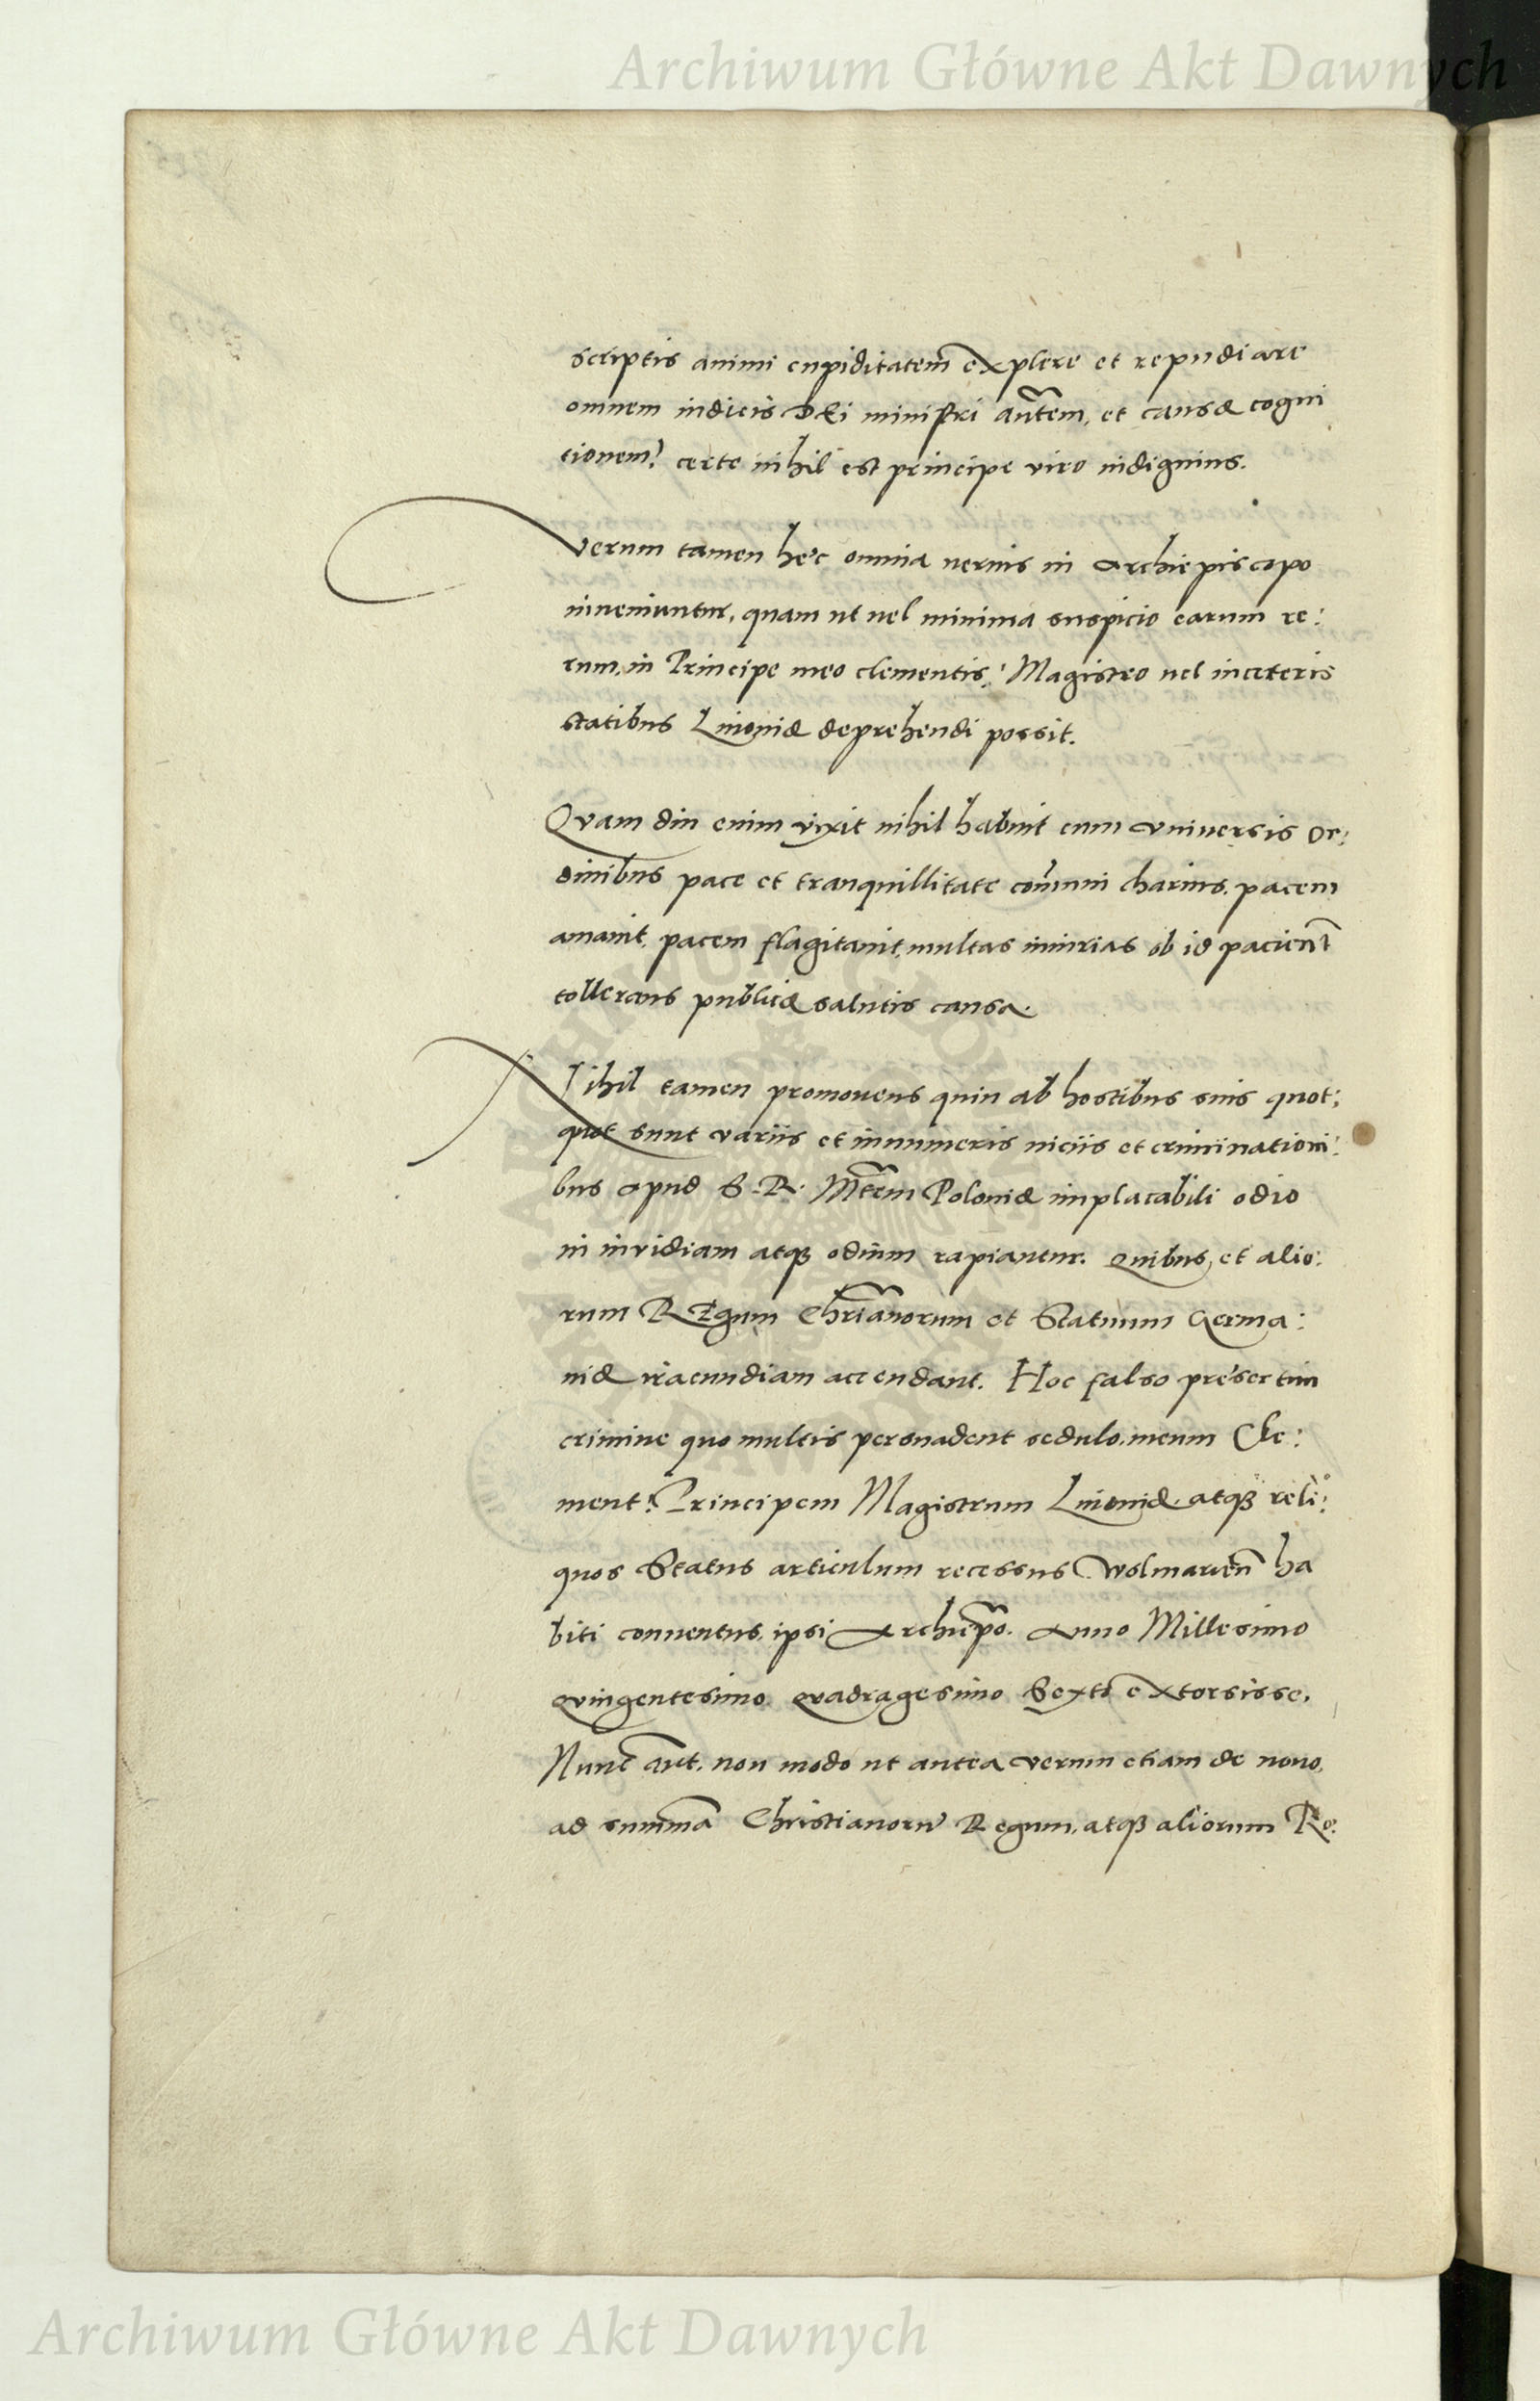 Archiwum Główne Akt Dawnych
scriptis animi cupiditatem explere et repudiare
omnem iudicis DEi ministri autem, et causæ cogni
tionem? certe nihil est principe viro indignius.
Verum tamen hec omnia uerius in Archiepiscopo
inueniuntur, quam ut uel minima suspicio earum re:
rum, in Principe meo clementis: Magistro uel in ceteris
statibus Liuoniæ deprehendi possit.
Quam diu enim vixit nihil habuit cum vniuersis or:
dinibus pace et tranquillitate comuni charius. pacem
amauit, pacem flagitauit, multas iniurias ob id pacient
tollerans publicæ salutis causa.
Nihil tamen promouens quin ab hostibus suis quot:
quot sunt variis et innumeris uiciis et criminationi:
bus apud S. R. Mtem Poloniæ implacabili odio
in inuidiam atq odium rapiantur. Quibus, et alio:
rum REgum Chrianorum et Statuum Germa:
niæ iracundiam accendant. Hoc falso presertim
crimine quo multis persuadent sedulo, meum Cle:
ment: Principem Magistrum Liuoniæ, atq reli:
quos Status articulum recessus Wolmarien ha
biti conuentus, ipsi Archiepo. Anno Millesimo
Quingentesimo Quadragesimo Sexto extorsisse.
Nunc aut. non modo ut antea verum etiam de nouo,
ad summa Christianoru Regum, atq aliorum Ro:
Archiwum Główne Akt Dawnych